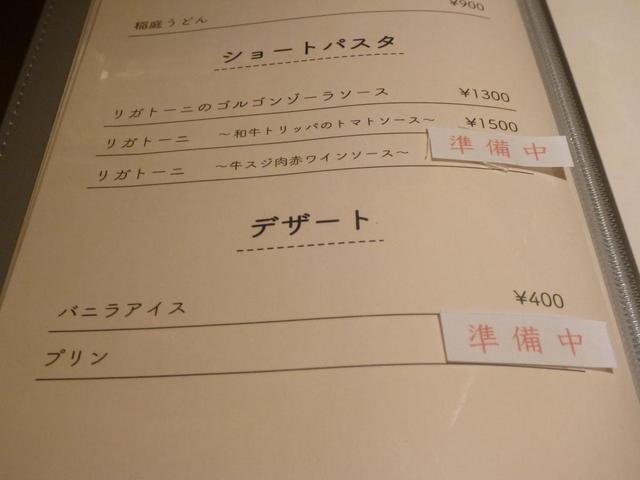 稲庭うどん ¥900
ショートパスタ
リガトーニのゴルゴンゾーラソース ¥1300
リガトーニ ～和牛トリッパのトマトソース～ ¥1500
リガトーニ ～牛スジ肉赤ワインソース～ 準備中
デザート
バニラアイス ¥400
プリン 準備中